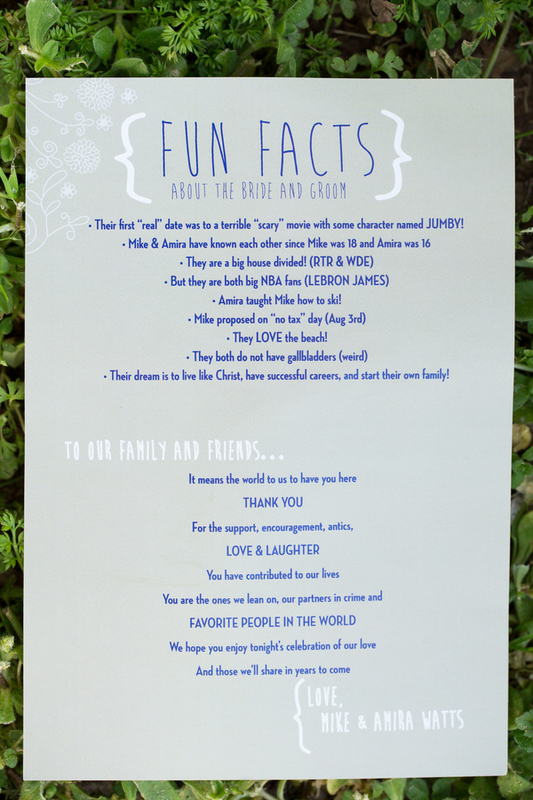 { FUN FACTS }
ABOUT THE BRIDE AND GROOM
• Their first “real” date was to a terrible “scary” movie with some character named JUMBY!
• Mike & Amira have known each other since Mike was 18 and Amira was 16
• They are a big house divided! (RTR & WDE)
• But they are both big NBA fans (LEBRON JAMES)
• Amira taught Mike how to ski!
• Mike proposed on “no tax” day (Aug 3rd)
• They LOVE the beach!
• They both do not have gallbladders (weird)
• Their dream is to live like Christ, have successful careers, and start their own family!
TO OUR FAMILY AND FRIENDS...
It means the world to us to have you here
THANK YOU
For the support, encouragement, antics,
LOVE & LAUGHTER
You have contributed to our lives
You are the ones we lean on, our partners in crime and
FAVORITE PEOPLE IN THE WORLD
We hope you enjoy tonight’s celebration of our love
And those we’ll share in years to come
{ LOVE,
MIKE & AMIRA WATTS